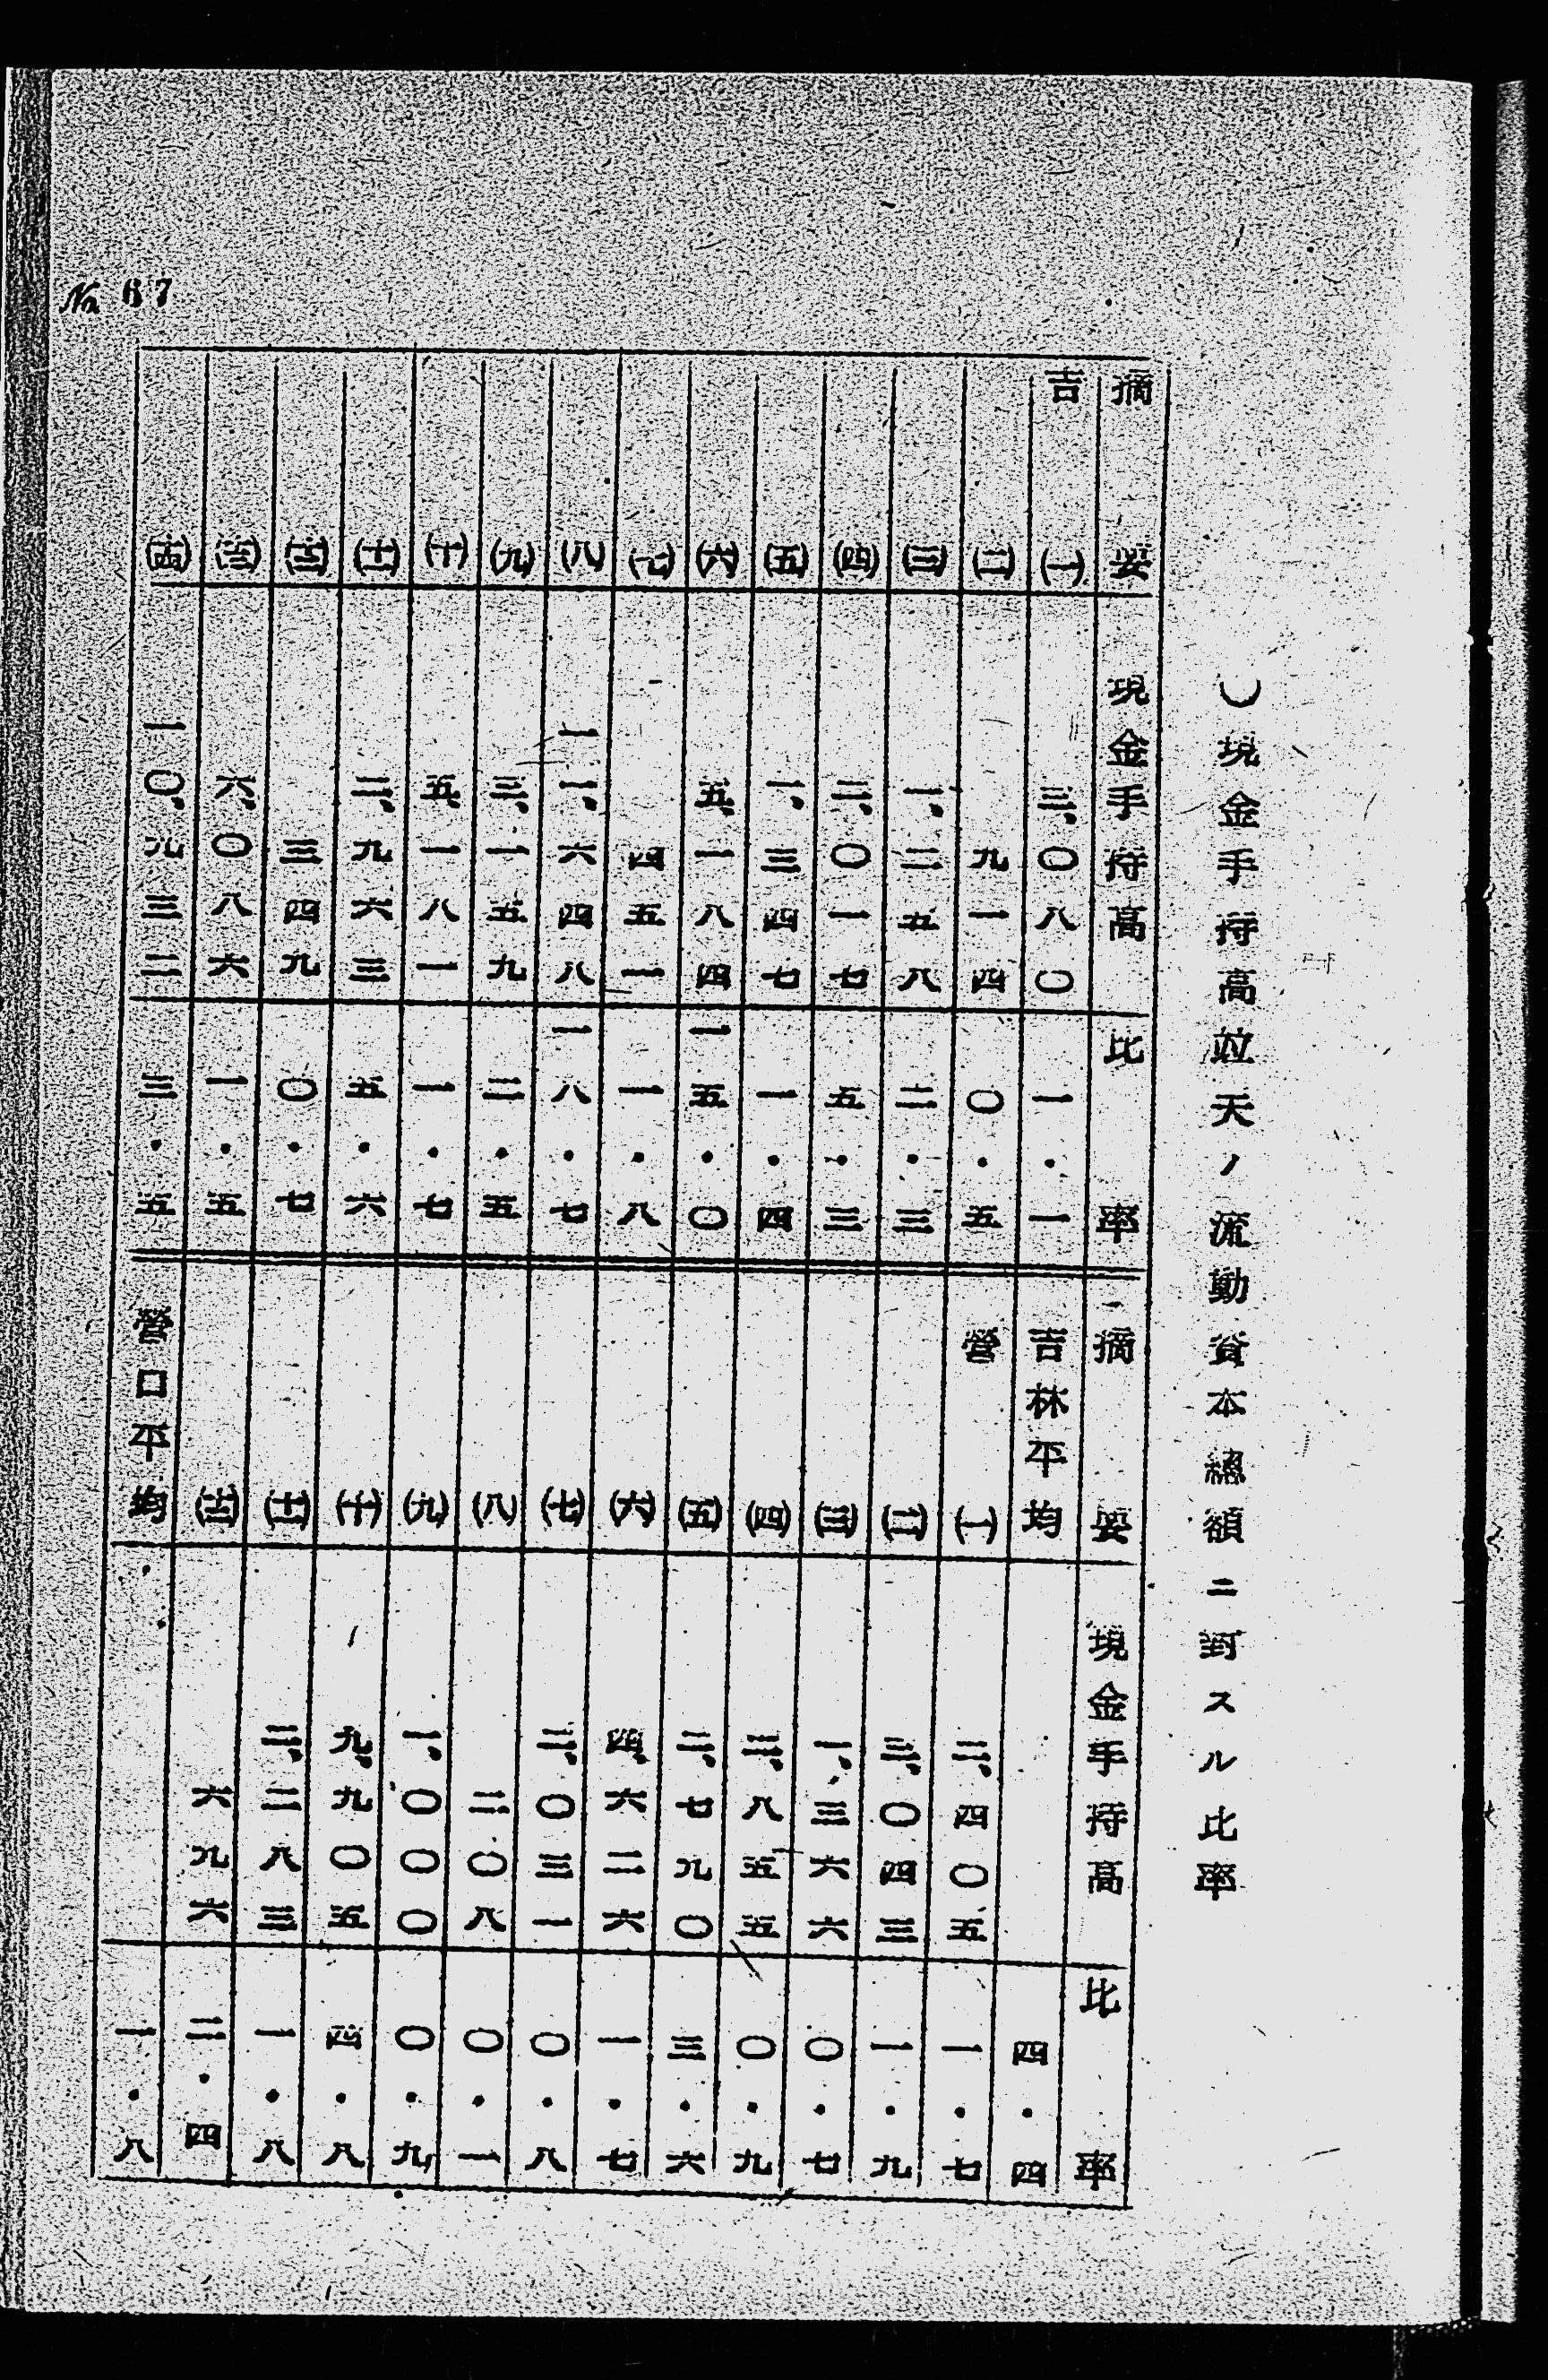 〇現金手持高竝天ノ流動資本總額ニ對スル比率
摘要 現金手持高 比率
吉 (一) 三、〇八〇 一・一
(二) 九一四 〇・五
(三) 一、二五八 二・三
(四) 二、〇一七 五・三
(五) 一、三四七 一・四
(六) 五、一八四 一五・〇
(七) 四五一 一・八
(八) 一一、六四八 一八・七
(九) 三、一五九 二・五
(十) 五、一八一 一・七
(十一) 二、九六三 五・六
(十二) 三四九 〇・七
(十三) 六、〇八六 一・五
(十四) 一〇、九三二 三・五
摘要 現金手持高 比率
吉林平均 四・四
營 (一) 二、四〇五 一・七
(二) 三、〇四三 一・九
(三) 一、三六六 〇・七
(四) 三、八五五 〇・九
(五) 二、七九〇 三・六
(六) 四、六二六 一・七
(七) 二、〇三一 〇・八
(八) 二〇八 〇・一
(九) 一、〇〇〇 〇・九
(十) 九、九〇五 四・八
(十一) 二、二八三 一・八
(十二) 六九六 二・四
營口平均 一・八
No. 67